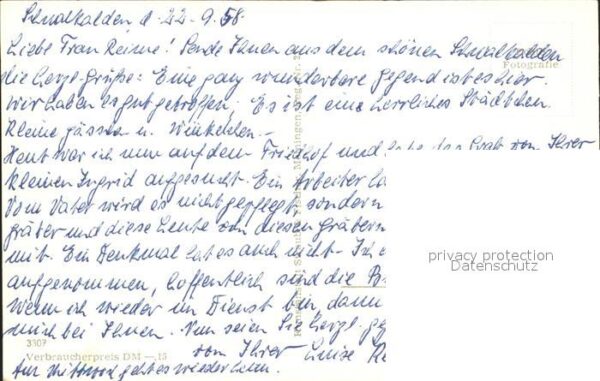 Schmalkalden d. 22.9.58.
Liebe Frau Reime! Sende Ihnen aus dem schönen Schmalkalden
die herzl. Grüße. Eine ganz wunderbare Gegend ist es hier.
Wir haben es gut getroffen. Es ist eine herrliches Städtchen.
Kleine Gässch. u. Winkelchen.-
Heut war ich nun auf dem Friedhof und habe das Grab von Ihrer
kleinen Ingrid aufgesucht. Ein Arbeiter
Vom Vater wird es nicht gepflegt sondern
gräber und diese Leute von diesen Gräbern
mit. Ein Denkmal hat es auch nicht. Ich
aufgenommen, hoffentlich sind die
Wenn ich wieder im Dienst bin, dann
mich bei Ihnen. Nun seien Sie herzl.
von Ihrer Luise
Am Mittwoch geht es wieder heim.
Fotografie
3107
Verbraucherpreis DM —.15
privacy protection
Datenschutz